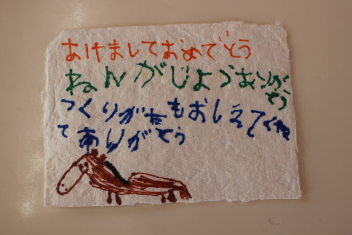 あけましておめでとう
ねんがじょうありがとう
つくりがたもおしえてくれ
てありがとう